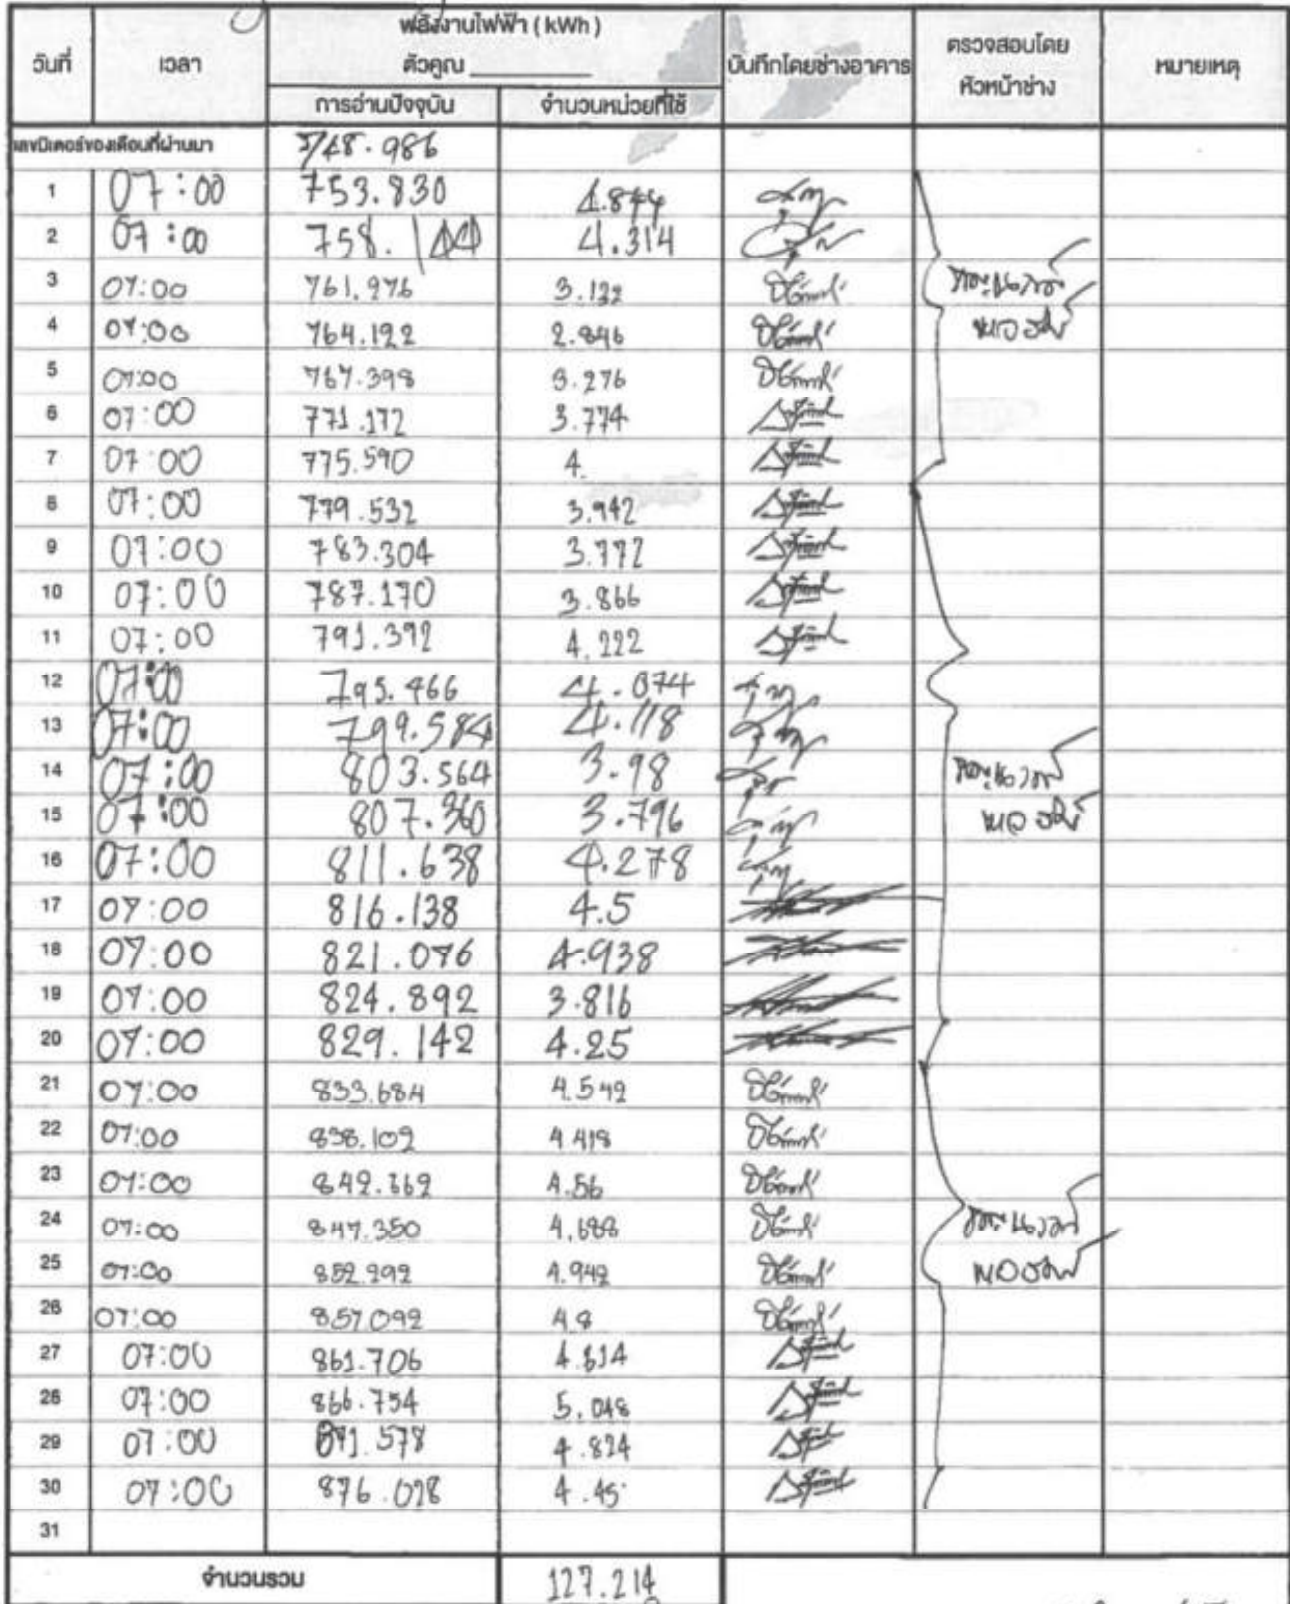 พลังงานไฟฟ้า ( kWh )
วันที่ เวลา ตัวคูณ บันทึกโดยช่างอาคาร ตรวจสอบโดย หมายเหตุ
หัวหน้าช่าง
การอ่านปัจจุบัน จำนวนหน่วยที่ใช้
เลขมิเตอร์ของเดือนที่ผ่านมา 748.986
1 07:00 753.830 4.844
2 07:00 758.144 4.314
3 07:00 761.276 3.132
4 07:00 764.122 2.846
5 07:00 767.398 3.276
6 07:00 771.172 3.774
7 07:00 775.590 4.
8 07:00 779.532 3.942
9 07:00 783.304 3.772
10 07:00 787.170 3.866
11 07:00 791.392 4.222
12 07:00 795.466 4.074
13 07:00 799.584 4.118
14 07:00 803.564 3.98
15 07:00 807.360 3.796
16 07:00 811.638 4.278
17 07:00 816.138 4.5
18 07:00 821.076 4.938
19 07:00 824.892 3.816
20 07:00 829.142 4.25
21 07:00 833.684 4.542
22 07:00 838.102 4.418
23 07:00 842.662 4.56
24 07:00 847.350 4.688
25 07:00 852.292 4.942
26 07:00 857.092 4.8
27 07:00 861.706 4.614
28 07:00 866.754 5.048
29 07:00 871.578 4.824
30 07:00 876.028 4.45
31
จำนวนรวม 127.214